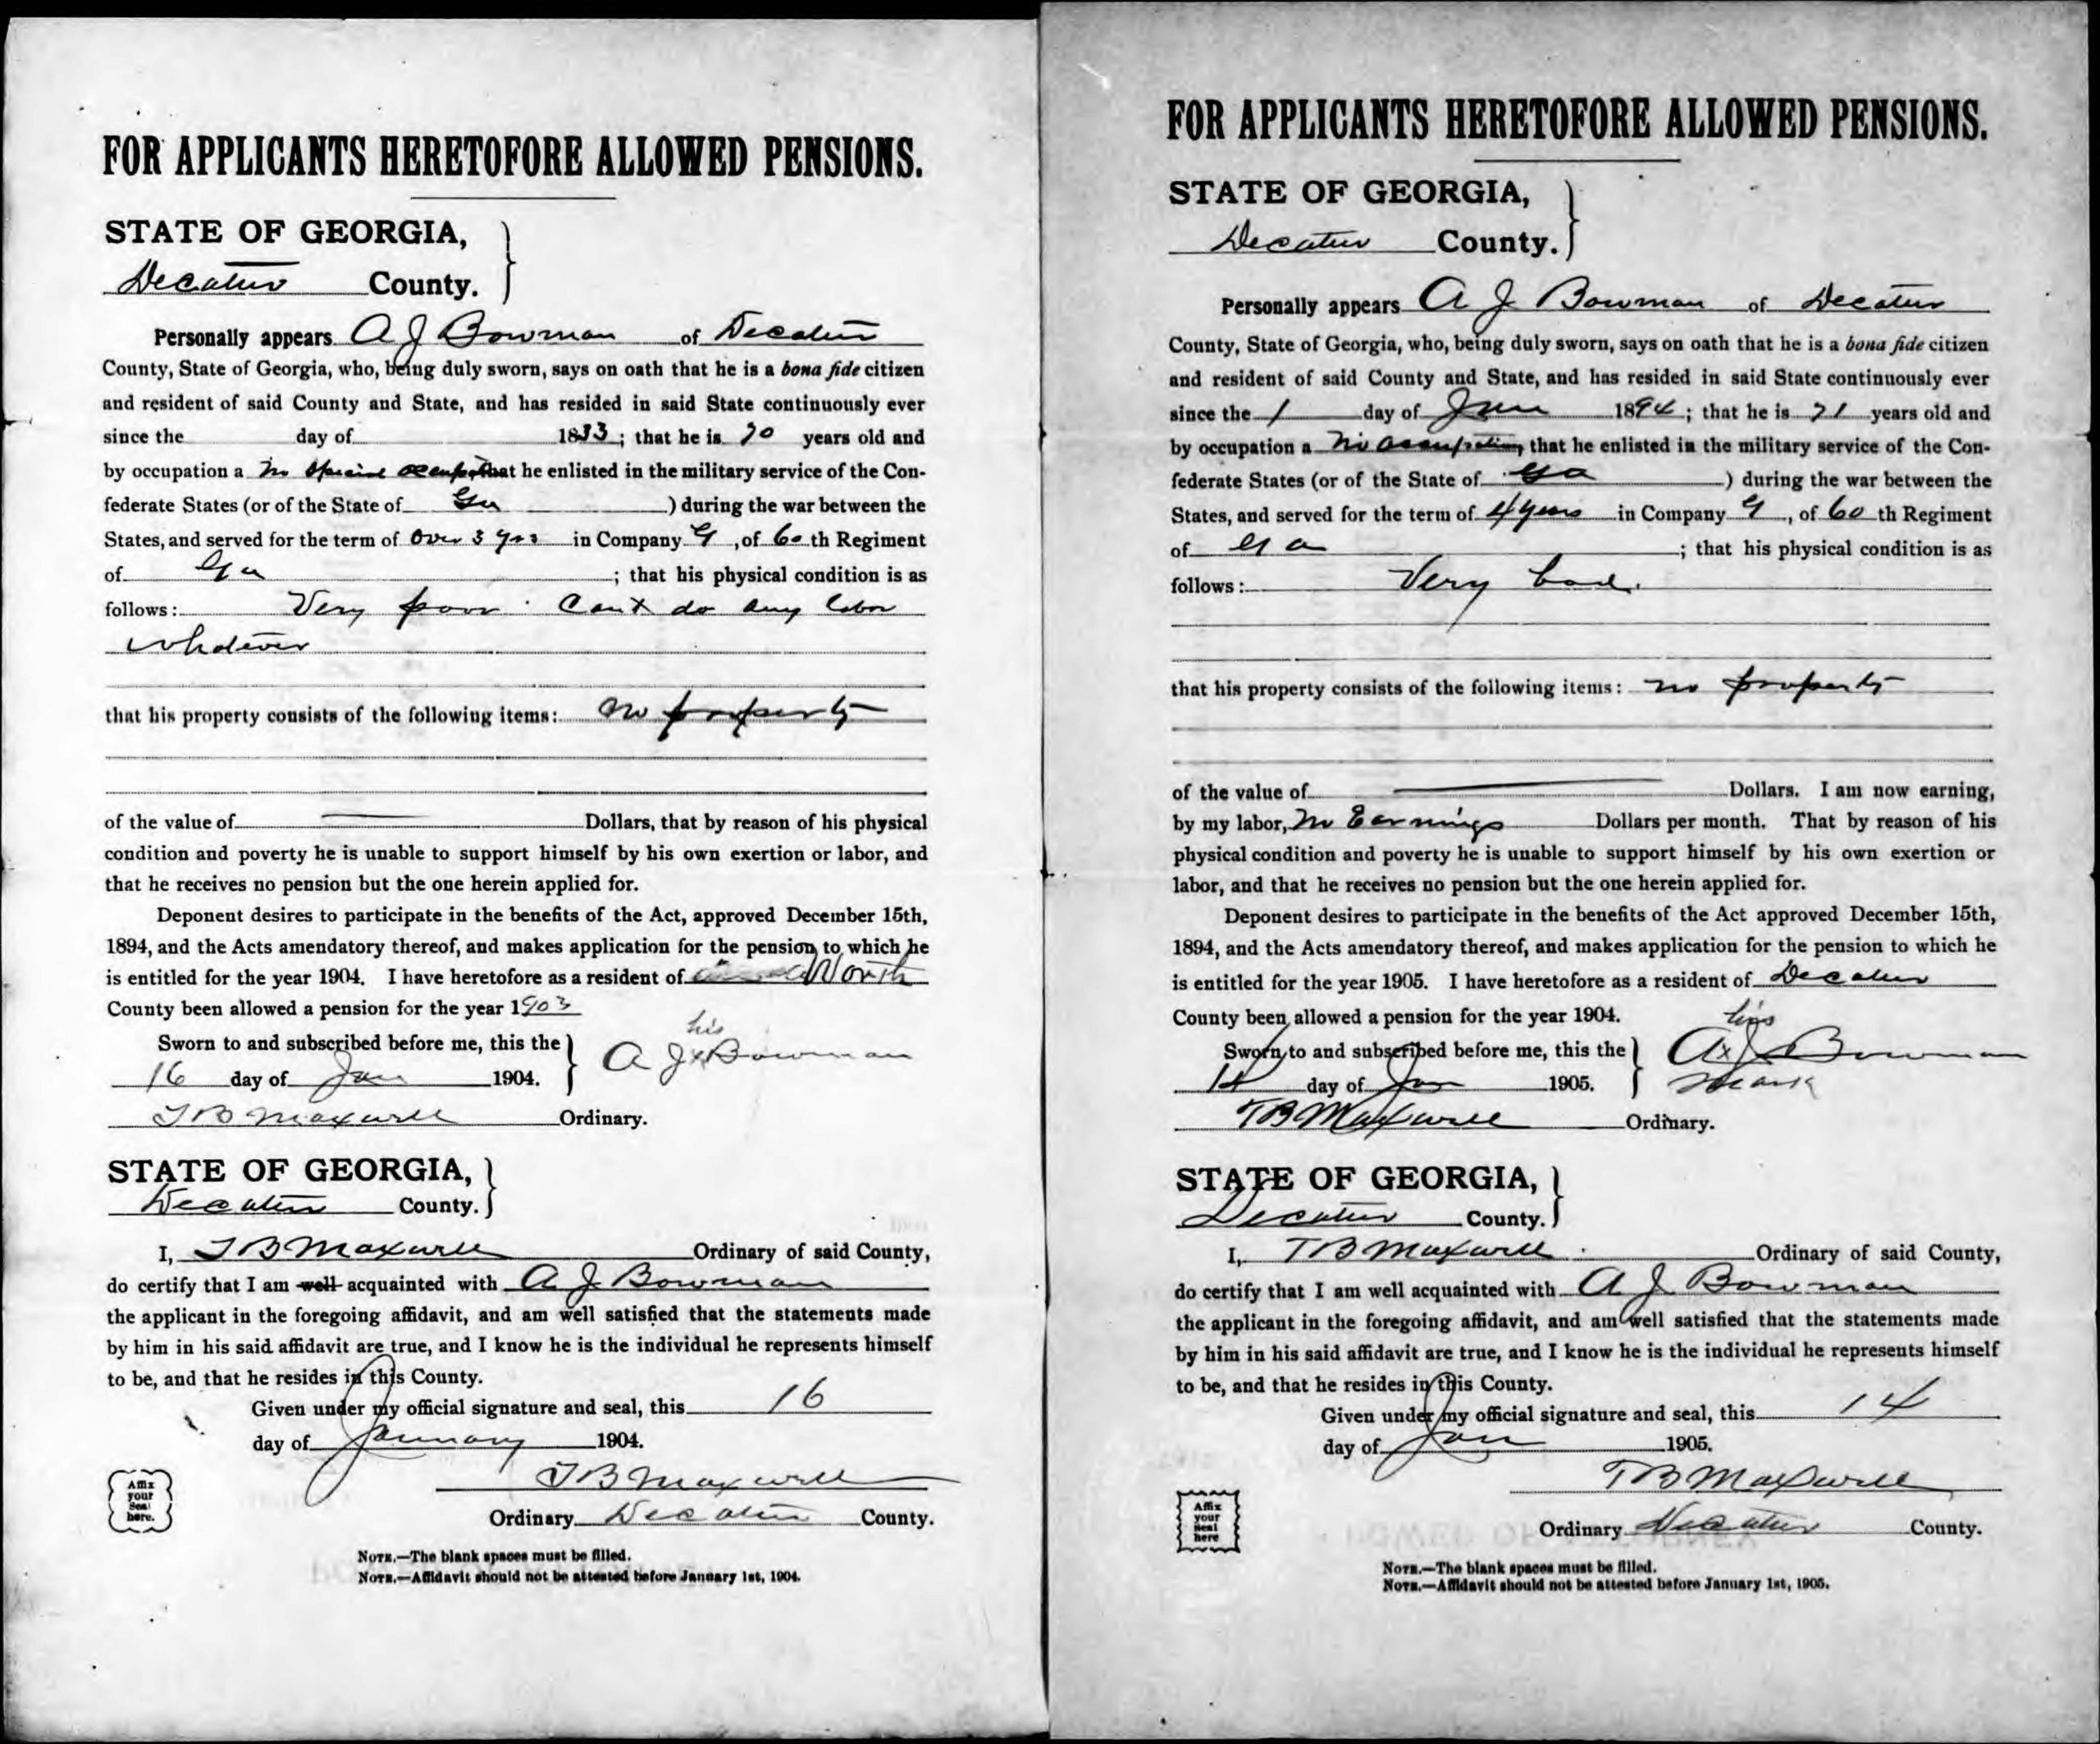 FOR APPLICANTS HERETOFORE ALLOWED PENSIONS.
STATE OF GEORGIA,
Decatur County.
Personally appears A J Bowman of Decatur
County, State of Georgia, who, being duly sworn, says on oath that he is a bona fide citizen
and resident of said County and State, and has resided in said State continuously ever
since the day of 1833; that he is 70 years old and
by occupation a no special occupation that he enlisted in the military service of the Con-
federate States (or of the State of Ga ) during the war between the
States, and served for the term of Over 3 yrs in Company G, of 60th Regiment
of Ga ; that his physical condition is as
follows: Very poor. Cant do any labor
whatever
that his property consists of the following items: no property
of the value of Dollars, that by reason of his physical
condition and poverty he is unable to support himself by his own exertion or labor, and
that he receives no pension but the one herein applied for.
Deponent desires to participate in the benefits of the Act, approved December 15th,
1894, and the Acts amendatory thereof, and makes application for the pension to which he
is entitled for the year 1904. I have heretofore as a resident of Worth
County been allowed a pension for the year 1903
Sworn to and subscribed before me, this the
16 day of Jan 1904.
his
A J x Bowman
T B Maxwell Ordinary.
STATE OF GEORGIA,
Decatur County.
I, T B Maxwell Ordinary of said County,
do certify that I am well acquainted with A J Bowman
the applicant in the foregoing affidavit, and am well satisfied that the statements made
by him in his said affidavit are true, and I know he is the individual he represents himself
to be, and that he resides in this County.
Given under my official signature and seal, this 16
day of January 1904.
T B Maxwell
Ordinary Decatur County.
Affix
your
Seal
here.
NOTE.—The blank spaces must be filled.
NOTE.—Affidavit should not be attested before January 1st, 1904.
FOR APPLICANTS HERETOFORE ALLOWED PENSIONS.
STATE OF GEORGIA,
Decatur County.
Personally appears A J Bowman of Decatur
County, State of Georgia, who, being duly sworn, says on oath that he is a bona fide citizen
and resident of said County and State, and has resided in said State continuously ever
since the 1 day of Jan 1894; that he is 71 years old and
by occupation a no occupation, that he enlisted in the military service of the Con-
federate States (or of the State of Ga ) during the war between the
States, and served for the term of 4 years in Company G, of 60th Regiment
of Ga ; that his physical condition is as
follows: Very bad.
that his property consists of the following items: no property
of the value of Dollars. I am now earning,
by my labor, no Earnings Dollars per month. That by reason of his
physical condition and poverty he is unable to support himself by his own exertion or
labor, and that he receives no pension but the one herein applied for.
Deponent desires to participate in the benefits of the Act approved December 15th,
1894, and the Acts amendatory thereof, and makes application for the pension to which he
is entitled for the year 1905. I have heretofore as a resident of Decatur
County been allowed a pension for the year 1904.
Sworn to and subscribed before me, this the
14 day of Jan 1905.
his
A x J Bowman
mark
T B Maxwell Ordinary.
STATE OF GEORGIA,
Decatur County.
I, T B Maxwell Ordinary of said County,
do certify that I am well acquainted with A J Bowman
the applicant in the foregoing affidavit, and am well satisfied that the statements made
by him in his said affidavit are true, and I know he is the individual he represents himself
to be, and that he resides in this County.
Given under my official signature and seal, this 14
day of Jan 1905.
T B Maxwell
Ordinary Decatur County.
Affix
your
Seal
here
NOTE.—The blank spaces must be filled.
NOTE.—Affidavit should not be attested before January 1st, 1905.